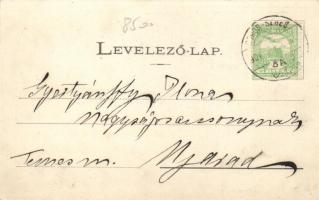 85.-
LEVELEZŐ-LAP.
Gyertyánffy Ilona
Nagyságos asszonynak
Temesm. Ujarad